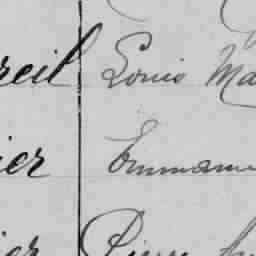 reil Louis Ma
ier Emmanu
ier Pierre